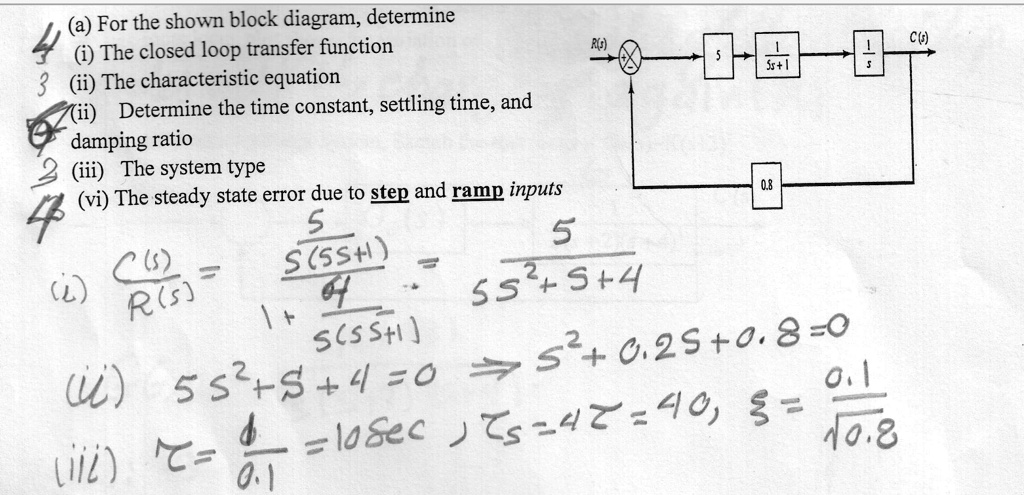 4 (a) For the shown block diagram, determine
(i) The closed loop transfer function
3 (ii) The characteristic equation
(ii) Determine the time constant, settling time, and
damping ratio
2 (iii) The system type
4 (vi) The steady state error due to step and ramp inputs
R(s) + - 5 1/(5s+1) 1/s C(s)
0.8
(i) C(s)/R(s) = (5/(S(5S+1)))/(1 + 4/(S(5S+1))) = 5/(5S²+S+4)
(ii) 5S²+S+4=0 ⇒ S²+0.2S+0.8=0
(iii) τ = 1/0.1 = 10 sec, τs=4τ=40, ξ = 0.1/√0.8